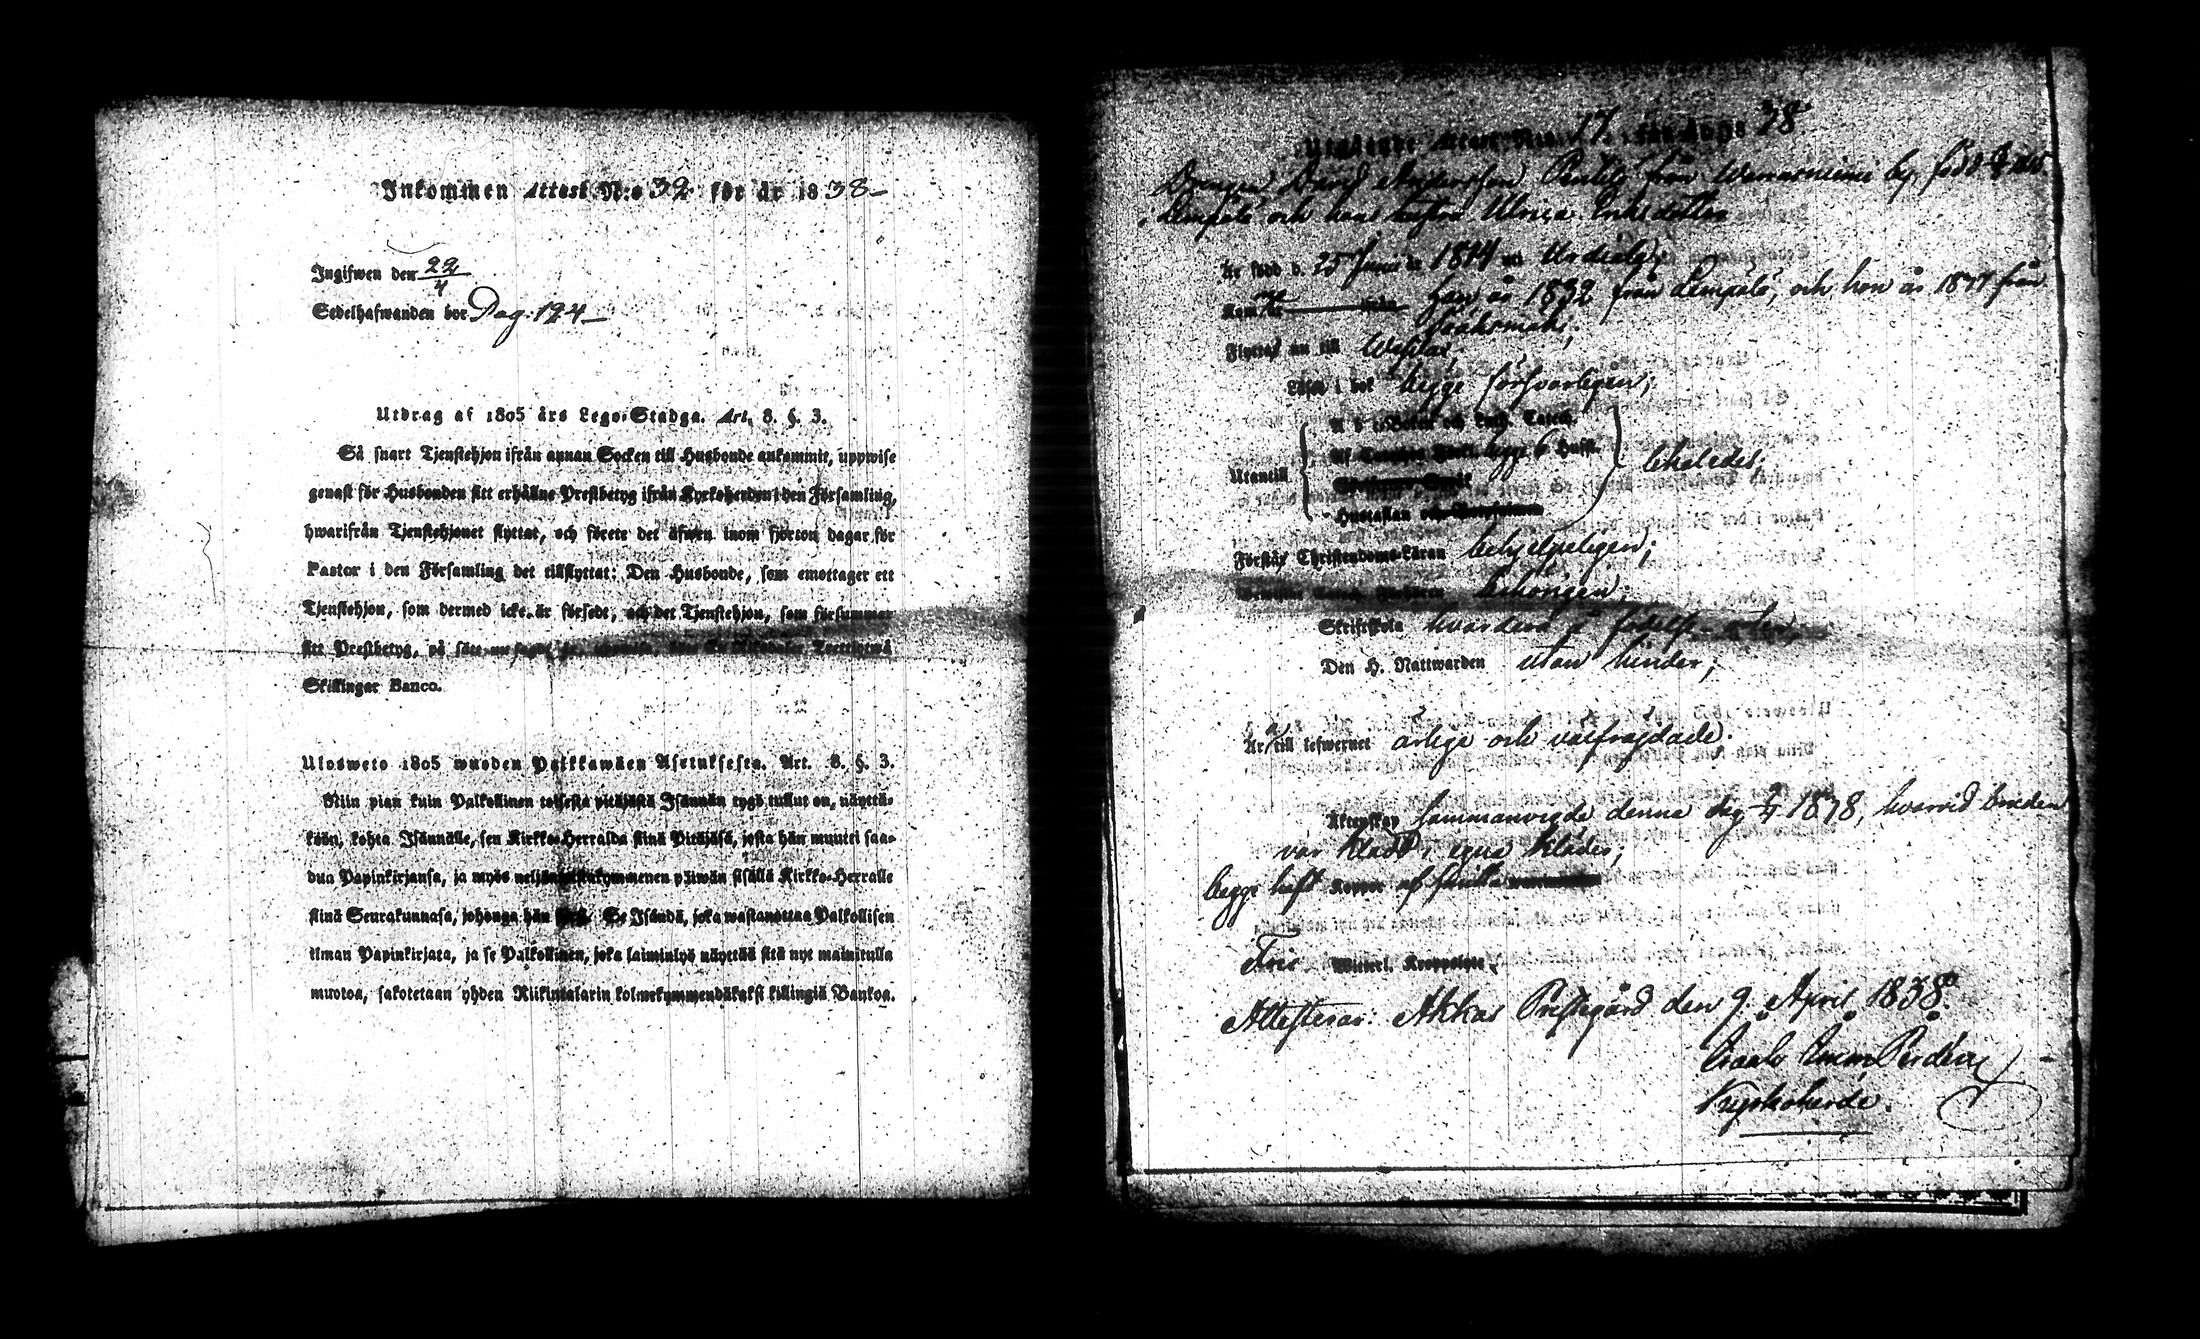 Inkommen Attest N:o 32 för år 1838
Ingifwen den 22/4
Sedelhafwanden bor Pag: 124
Utdrag af 1805 års Lego-Stadga. Art. 8. §. 3.
Så snart Tjenstehjon ifrån annan Socken till Husbonde ankommit, uppwise
genast för Husbonden sitt erhållne Prestbetyg ifrån Kyrkoherden i den Församling,
hwarifrån Tjenstehjonet flyttat, och förete det äfwen inom fjorton dagar för
Pastor i den Församling det tillflyttat: Den Husbonde, som emottager ett
Tjenstehjon, som dermed icke är försedt, och det Tjenstehjon, som försummar
sitt Prestbetyg, på sätt nu sagdt är, uppwisa, böte En Riksdaler Trettiotwå
Skillingar Banco.
Ulosweto 1805 wuoden Palkkawäen Asetuksesta. Art. 8. §. 3.
Niin pian kuin Palkollinen toisesta pitäjästä Isännän tygö tullut on, näyttä-
köön, kohta Isännälle, sen Kirkko-Herralda siinä Pitäjäsä, josta hän muutti saa-
dun Papinkirjansa, ja myös neljäntoistakymmenen päiwän sisällä Kirkko-Herralle
siinä Seurakunnasa, johonga hän Se Isändä, joka wastanottaa Palkollisen
ilman Papinkirjata, ja se Palkollinen, joka laiminlyö näyttää sitä nyt mainitulla
muotoa, sakotetaan yhden Riikintalarin kolmekymmendäkaksi killingiä Bankoa.
Utgående Attest N:o 17. för år 1838
Drengen David Andersson Penttilä från by, född
Lempälä och hans hustru Ulrica Eriksdotter
Är född d. 25 Junii år 1814 uti Urdiala;
Kom han år 1832 från Lempälä, och hon år från
Flyttar nu till
Läser i bok begge försvarligen;
A b c-Boken och Luth. Catech.
Af begge 6 Hufst.
Utantill
Hustaflan och
Förstår Christendoms-Läran behjelpeligen;
behörigen;
Skriftskola
Den H. Nattwarden utan hinder;
Är till lefwernet ärlige och välfrägdade.
Äktenskap sammanvigde denna dag 1838, hvarvid bruden
var klädd i egna kläder;
begge haft Koppor
Fri
Attesterar: Akkas Prestegård den 9. April 1838.
Kyrkoherde.